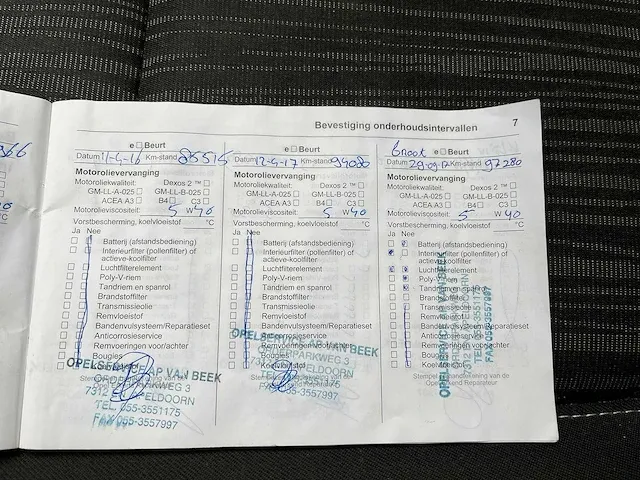 Bevestiging onderhoudsintervallen 7
e Beurt
Datum 11-4-16 Km-stand 85515
Motorolievervanging
Motoroliekwaliteit: Dexos 2 ™
GM-LL-A-025 GM-LL-B-025
ACEA A3 B4 C3
Motorolieviscositeit: 5 W 40
Vorstbescherming, koelvloeistof °C
Ja Nee
Batterij (afstandsbediening)
Interieurfilter (pollenfilter) of
actieve-koolfilter
Luchtfilterelement
Poly-V-riem
Tandriem en spanrol
Brandstoffilter
Transmissieolie
Remvloeistof
Bandenvulsysteem/Reparatieset
Anticorrosieservice
Remvoeringen voor/achter
Bougies
OPELSERVICE AP VAN BEEK
PARKWEG 3
7312 APELDOORN
TEL. 055-3551175
FAX 055-3557997
e Beurt
Datum 12-4-17 Km-stand
Motorolievervanging
Motoroliekwaliteit: Dexos 2 ™
GM-LL-A-025 GM-LL-B-025
ACEA A3 B4 C3
Motorolieviscositeit: 5 W 40
Vorstbescherming, koelvloeistof °C
Ja Nee
Batterij (afstandsbediening)
Interieurfilter (pollenfilter) of
actieve-koolfilter
Luchtfilterelement
Poly-V-riem
Tandriem en spanrol
Brandstoffilter
Transmissieolie
Remvloeistof
Bandenvulsysteem/Reparatieset
Anticorrosieservice
Remvoeringen voor/achter
Bougies
Koelvloeistof
OPELSERVICE AP VAN BEEK
PARKWEG 3
APELDOORN
055-3557997
Groot e Beurt
Datum Km-stand 97280
Motorolievervanging
Motoroliekwaliteit: Dexos 2 ™
GM-LL-A-025 GM-LL-B-025
ACEA A3 B4 C3
Motorolieviscositeit: 5 W 40
Vorstbescherming, koelvloeistof °C
Ja Nee
Batterij (afstandsbediening)
Interieurfilter (pollenfilter) of
actieve-koolfilter
Luchtfilterelement
Poly-V-riem
Tandriem en spanrol
Brandstoffilter
Transmissieolie
Remvloeistof
Bandenvulsysteem/Reparatieset
Anticorrosieservice
Remvoeringen voor/achter
Bougies
Koelvloeistof
Opel Erkend Reparateur
OPELSERVICE AP VAN BEEK
7312
TEL. 055-3551175
FAX 055-3557997